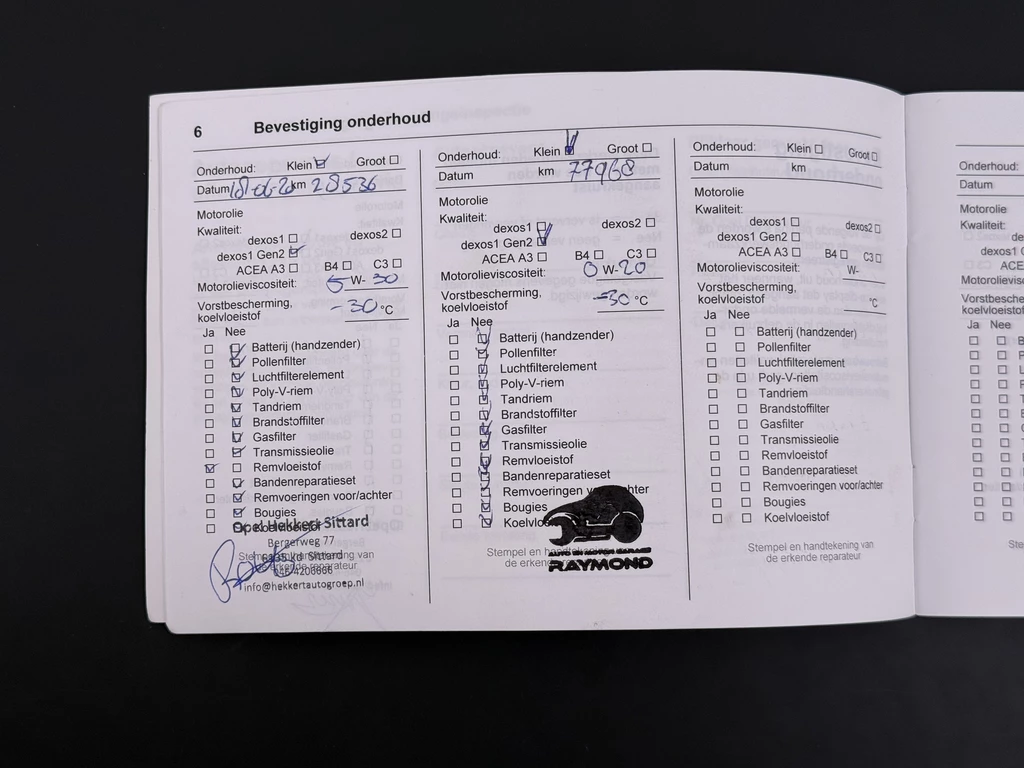 6 Bevestiging onderhoud
Onderhoud: Klein Groot
Datum 18-06-20 km 28536
Motorolie
Kwaliteit:
dexos1 dexos2
dexos1 Gen2
ACEA A3 B4 C3
Motorolieviscositeit: 5 W- 30
Vorstbescherming,
koelvloeistof -30 °C
Ja Nee
Batterij (handzender)
Pollenfilter
Luchtfilterelement
Poly-V-riem
Tandriem
Brandstoffilter
Gasfilter
Transmissieolie
Remvloeistof
Bandenreparatieset
Remvoeringen voor/achter
Bougies
Koelvloeistof
Opel Hekkert Sittard
Bergerweg 77
Sittard
info@hekkertautogroep.nl
Onderhoud: Klein Groot
Datum km 77968
Motorolie
Kwaliteit:
dexos1 dexos2
dexos1 Gen2
ACEA A3 B4 C3
Motorolieviscositeit: 0 W-20
Vorstbescherming,
koelvloeistof -30 °C
Ja Nee
Batterij (handzender)
Pollenfilter
Luchtfilterelement
Poly-V-riem
Tandriem
Brandstoffilter
Gasfilter
Transmissieolie
Remvloeistof
Bandenreparatieset
Remvoeringen voor/achter
Bougies
Stempel en handtekening
de erkende
RAYMOND
Onderhoud: Klein Groot
Datum km
Motorolie
Kwaliteit:
dexos1 dexos2
dexos1 Gen2
ACEA A3 B4 C3
Motorolieviscositeit: W-
Vorstbescherming,
koelvloeistof °C
Ja Nee
Batterij (handzender)
Pollenfilter
Luchtfilterelement
Poly-V-riem
Tandriem
Brandstoffilter
Gasfilter
Transmissieolie
Remvloeistof
Bandenreparatieset
Remvoeringen voor/achter
Bougies
Koelvloeistof
Stempel en handtekening van
de erkende reparateur
Onderhoud:
Datum
Motorolie
Kwaliteit:
Ja Nee